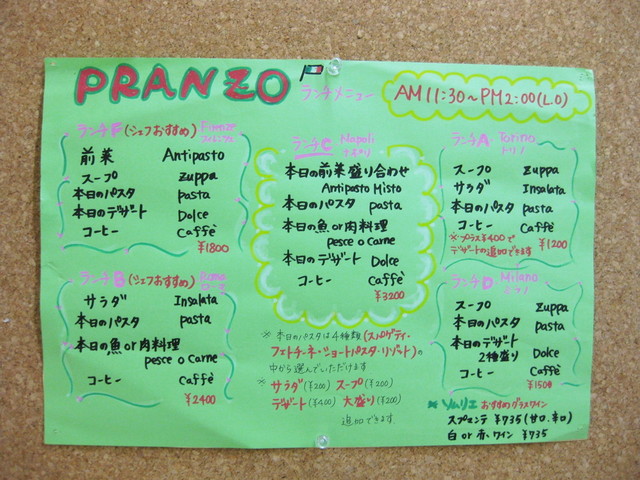 PRANZO ランチメニュー
AM11:30~PM2:00(L.O)
ランチF (シェフおすすめ) Firenze
フィレンツェ
前菜 Antipasto
スープ zuppa
本日のパスタ pasta
本日のデザート Dolce
コーヒー Caffè
¥1800
ランチB (シェフおすすめ) Roma
ローマ
サラダ Insalata
本日のパスタ pasta
本日の魚or肉料理
pesce o carne
コーヒー Caffè
¥2400
ランチC Napoli
ナポリ
本日の前菜盛り合わせ
Antipasto Misto
本日のパスタ pasta
本日の魚or肉料理
pesce o carne
本日のデザート Dolce
コーヒー Caffè
¥3200
※本日のパスタは4種類(スパゲティ・
フェトチーネ・ショートパスタ・リゾット)の
中から選んでいただけます
※サラダ(¥200) スープ(¥200)
デザート(¥400) 大盛り(¥200)
追加できます
ランチA Torino
トリノ
スープ zuppa
サラダ Insalata
本日のパスタ pasta
コーヒー Caffè
※プラス¥400で
デザートの追加できます ¥1200
ランチD Milano
ミラノ
スープ zuppa
本日のパスタ pasta
本日のデザート
2種盛り Dolce
コーヒー Caffè
¥1500
※ソムリエおすすめグラスワイン
スプマンテ ¥735(甘口、辛口)
白or赤ワイン ¥735